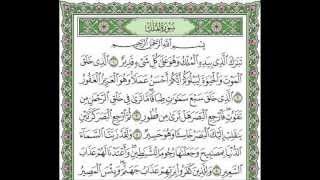 سُورَةُ الْمُلْكِ
بِسْمِ اللَّهِ الرَّحْمَٰنِ الرَّحِيمِ
تَبَٰرَكَ الَّذِي بِيَدِهِ الْمُلْكُ وَهُوَ عَلَىٰ كُلِّ شَيْءٍ قَدِيرٌ ١ الَّذِي خَلَقَ
الْمَوْتَ وَالْحَيَوٰةَ لِيَبْلُوَكُمْ أَيُّكُمْ أَحْسَنُ عَمَلًا وَهُوَ الْعَزِيزُ الْغَفُورُ ٢
الَّذِي خَلَقَ سَبْعَ سَمَٰوَٰتٍ طِبَاقًا مَا تَرَىٰ فِي خَلْقِ الرَّحْمَٰنِ مِن
تَفَٰوُتٍ فَارْجِعِ الْبَصَرَ هَلْ تَرَىٰ مِن فُطُورٍ ٣ ثُمَّ ارْجِعِ الْبَصَرَ كَرَّتَيْنِ
يَنقَلِبْ إِلَيْكَ الْبَصَرُ خَاسِئًا وَهُوَ حَسِيرٌ ٤ وَلَقَدْ زَيَّنَّا السَّمَاءَ
الدُّنْيَا بِمَصَٰبِيحَ وَجَعَلْنَٰهَا رُجُومًا لِّلشَّيَٰطِينِ وَأَعْتَدْنَا لَهُمْ عَذَابَ
السَّعِيرِ ٥ وَلِلَّذِينَ كَفَرُوا بِرَبِّهِمْ عَذَابُ جَهَنَّمَ وَبِئْسَ الْمَصِيرُ